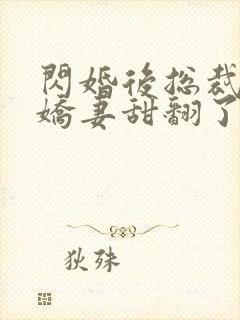 閃婚後總裁
嬌妻甜翻了
狄殊